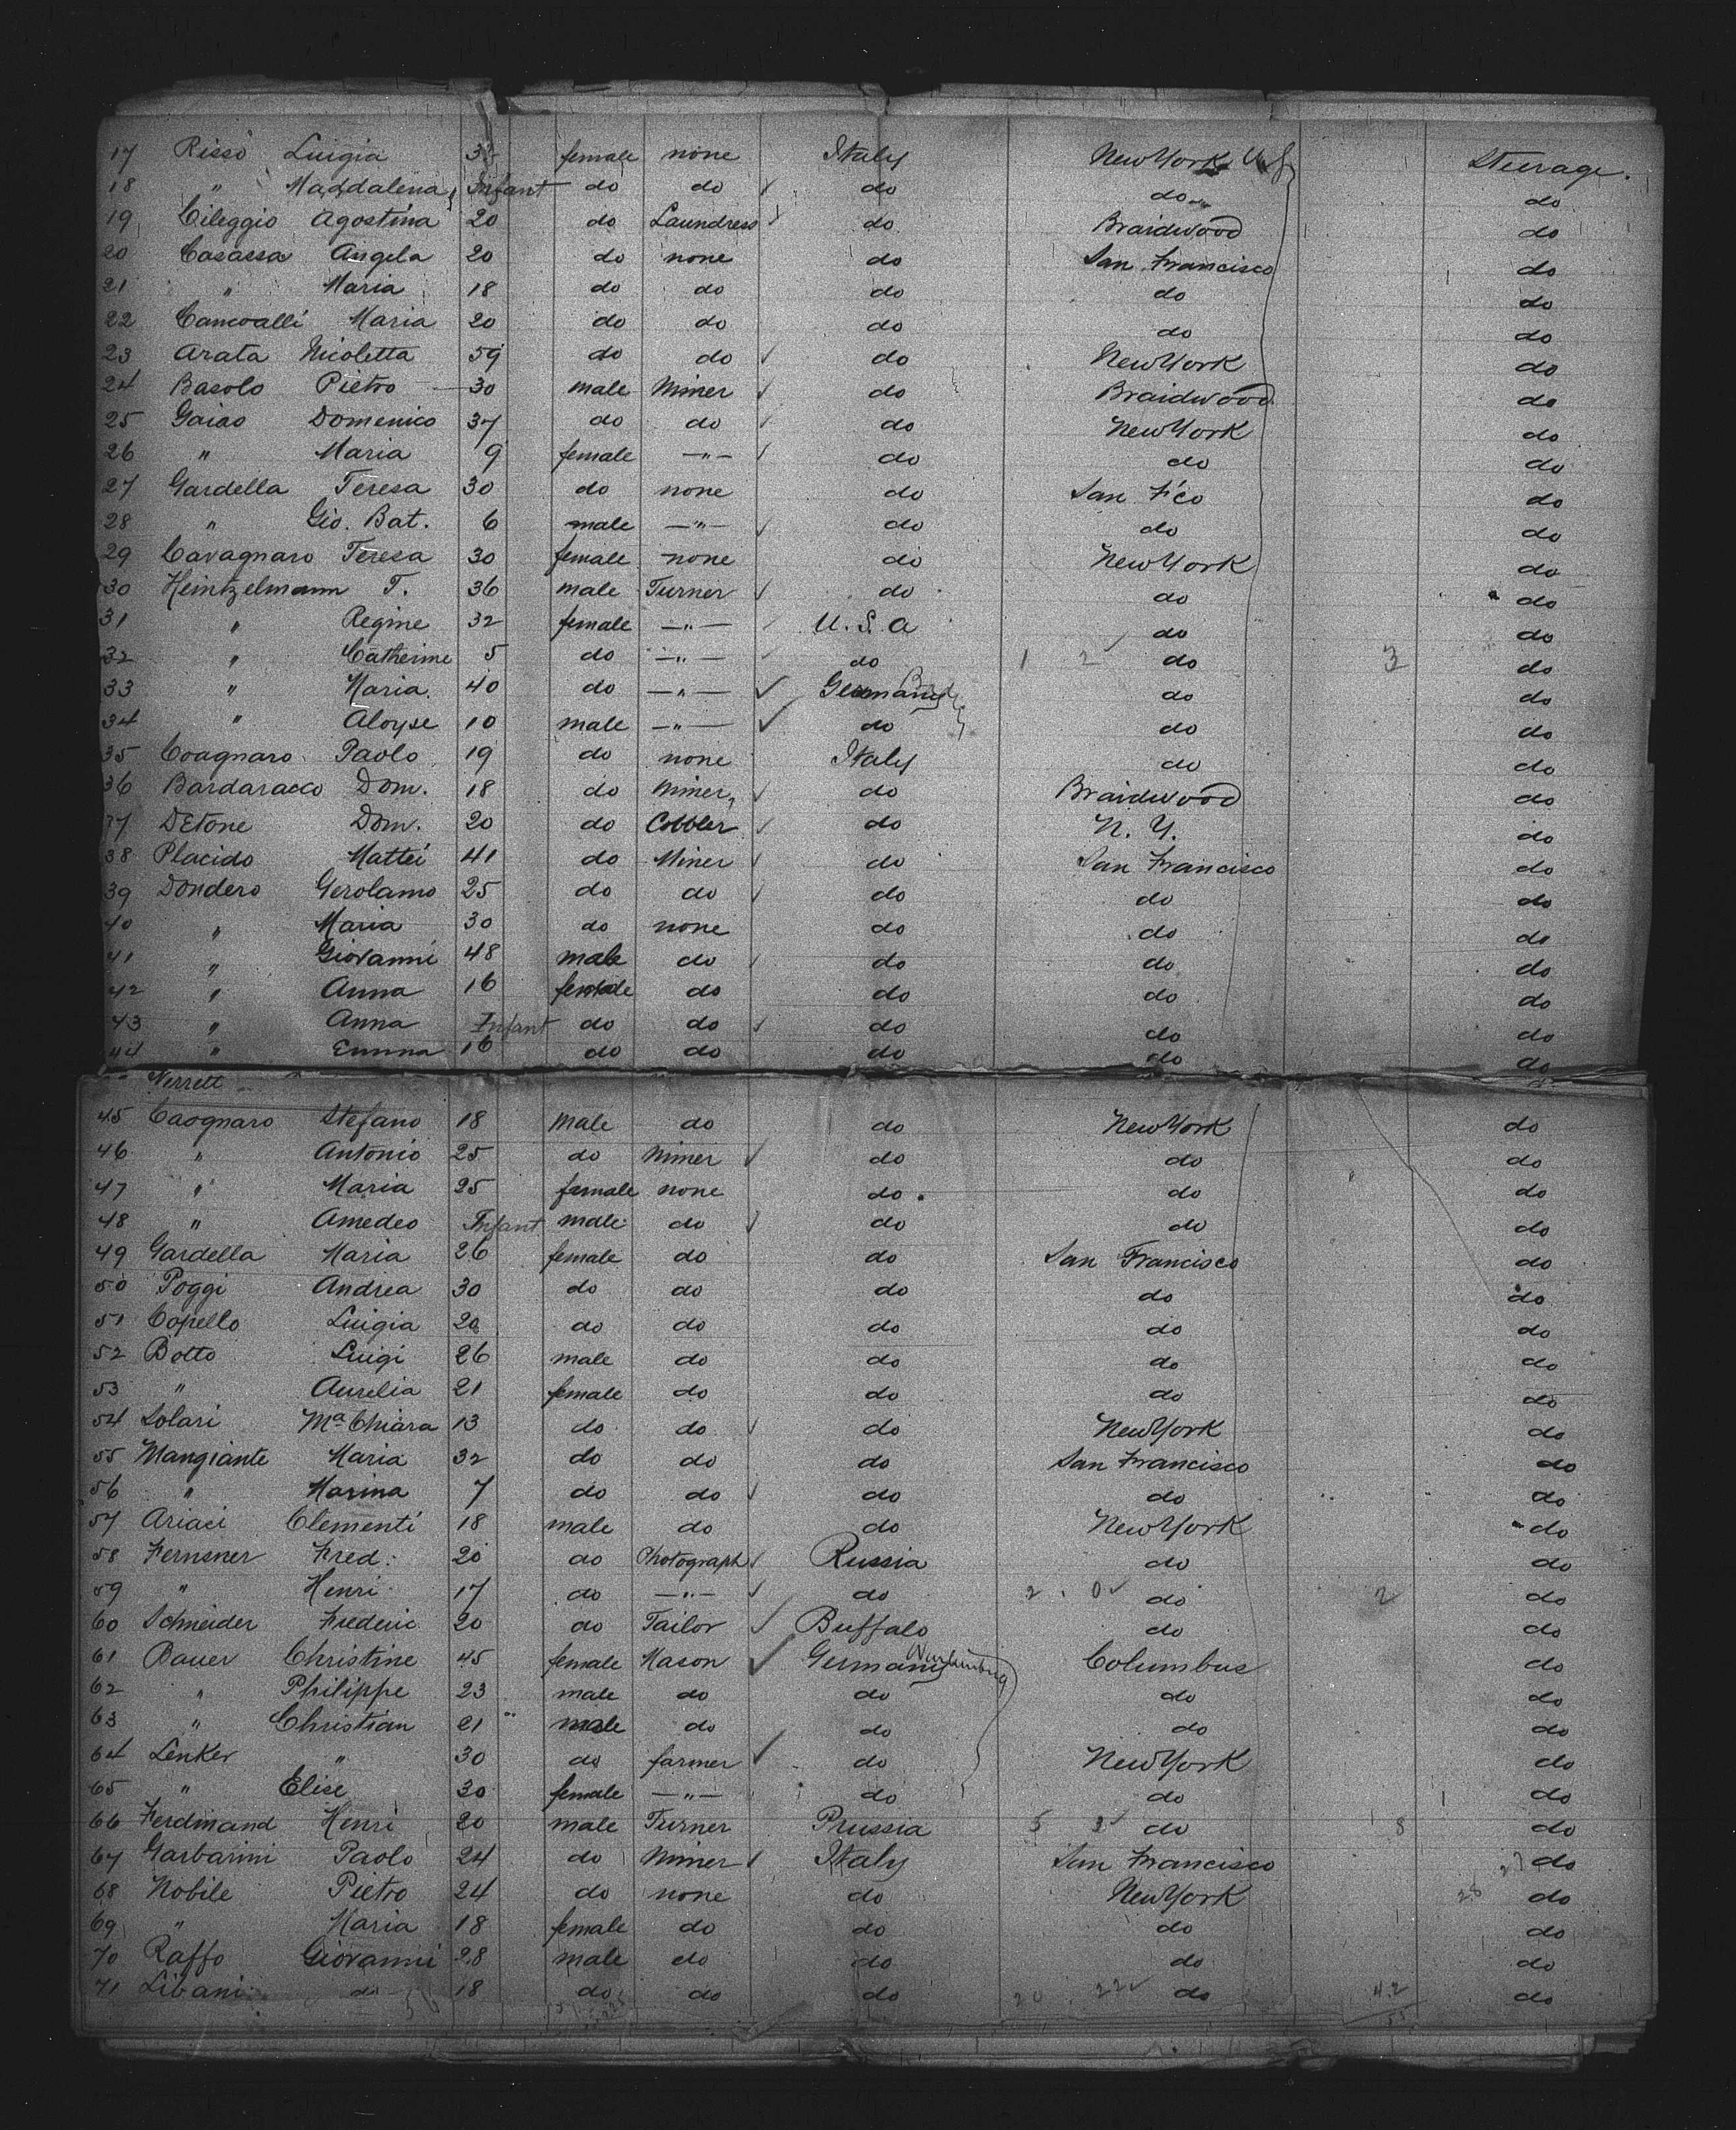 17 Risso Luigia 3 female none Italy New York U.S. Steerage.
18 " Maddalena Infant do do ✓ do do do
19 Cileggio Agostina 20 do Laundress ✓ do Braidwood do
20 Casassa Angela 20 do none do San Francisco do
21 " Maria 18 do do do do do
22 Maria 20 do do do do do
23 Arata Nicoletta 59 do do ✓ do New York do
24 Basolo Pietro 30 male Miner ✓ do Braidwood do
25 Gaiao Domenico 37 do do ✓ do New York do
26 " Maria 9 female —"— ✓ do do do
27 Gardella Teresa 30 do none do San F'co do
28 " Gio. Bat. 6 male —"— ✓ do do do
29 Cavagnaro Teresa 30 female none do New York do
30 Heintzelmann T. 36 male Turner ✓ do do do
31 " Regine 32 female —"— ✓ U.S.A do do
32 " Catherine 5 do —"— ✓ do 1 2 ✓ do 3 do
33 " Maria. 40 do —"— ✓ Germany do do
34 " Aloyse 10 male —"— ✓ do do do
35 Coagnaro Paolo 19 do none Italy do do
36 Bardaracco Dom. 18 do Miner, ✓ do Braidwood do
37 DEtone Dom. 20 do Cobbler ✓ do N. Y. do
38 Placido Mattei 41 do Miner ✓ do San Francisco do
39 Dondero Gerolamo 25 do do ✓ do do do
40 " Maria 30 do none do do do
41 " Giovanni 48 male do ✓ do do do
42 " Anna 16 female do do do do
43 " Anna Infant do do ✓ do do do
44 " Emma 16 do do do do do
Nerrett
45 Caognaro Stefano 18 male do do New York do
46 " Antonio 25 do Miner ✓ do do do
47 " Maria 25 female none do do do
48 " Amedeo Infant male do ✓ do do do
49 Gardella Maria 26 female do do San Francisco do
50 Poggi Andrea 30 do do do do do
51 Copello Luigia 20 do do do do do
52 Botto Luigi 26 male do do do do
53 " Aurelia 21 female do do do do
54 Solari Ma Chiara 13 do do ✓ do New York do
55 Mangiante Maria 32 do do do San Francisco do
56 " Marina 7 do do ✓ do do do
57 Ariaci Clementi 18 male do do New York do
58 Fernsner Fred: 20 do Photograph ✓ Russia do do
59 " Henri 17 do —"— ✓ do 2 0 ✓ do 2 do
60 Schneider Frederic 20 do Tailor ✓ Buffalo do do
61 Bauer Christine 45 female Mason ✓ Germany Columbus do
62 " Philippe 23 male do do do do
63 " Christian 21 male do do do do
64 Lenker " 30 do farmer ✓ do New York do
65 " Elise 30 female —"— do do do
66 Ferdinand Henri 20 male Turner Prussia 5 2 ✓ do 8 do
67 Garbarini Paolo 24 do Miner ✓ Italy San Francisco do
68 Nobile Pietro 24 do none do New York 28 do
69 " Maria 18 female do do do do
70 Raffo Giovanni 28 male do do do do
71 Libani do 18 do do do 20 22 ✓ do 42 do